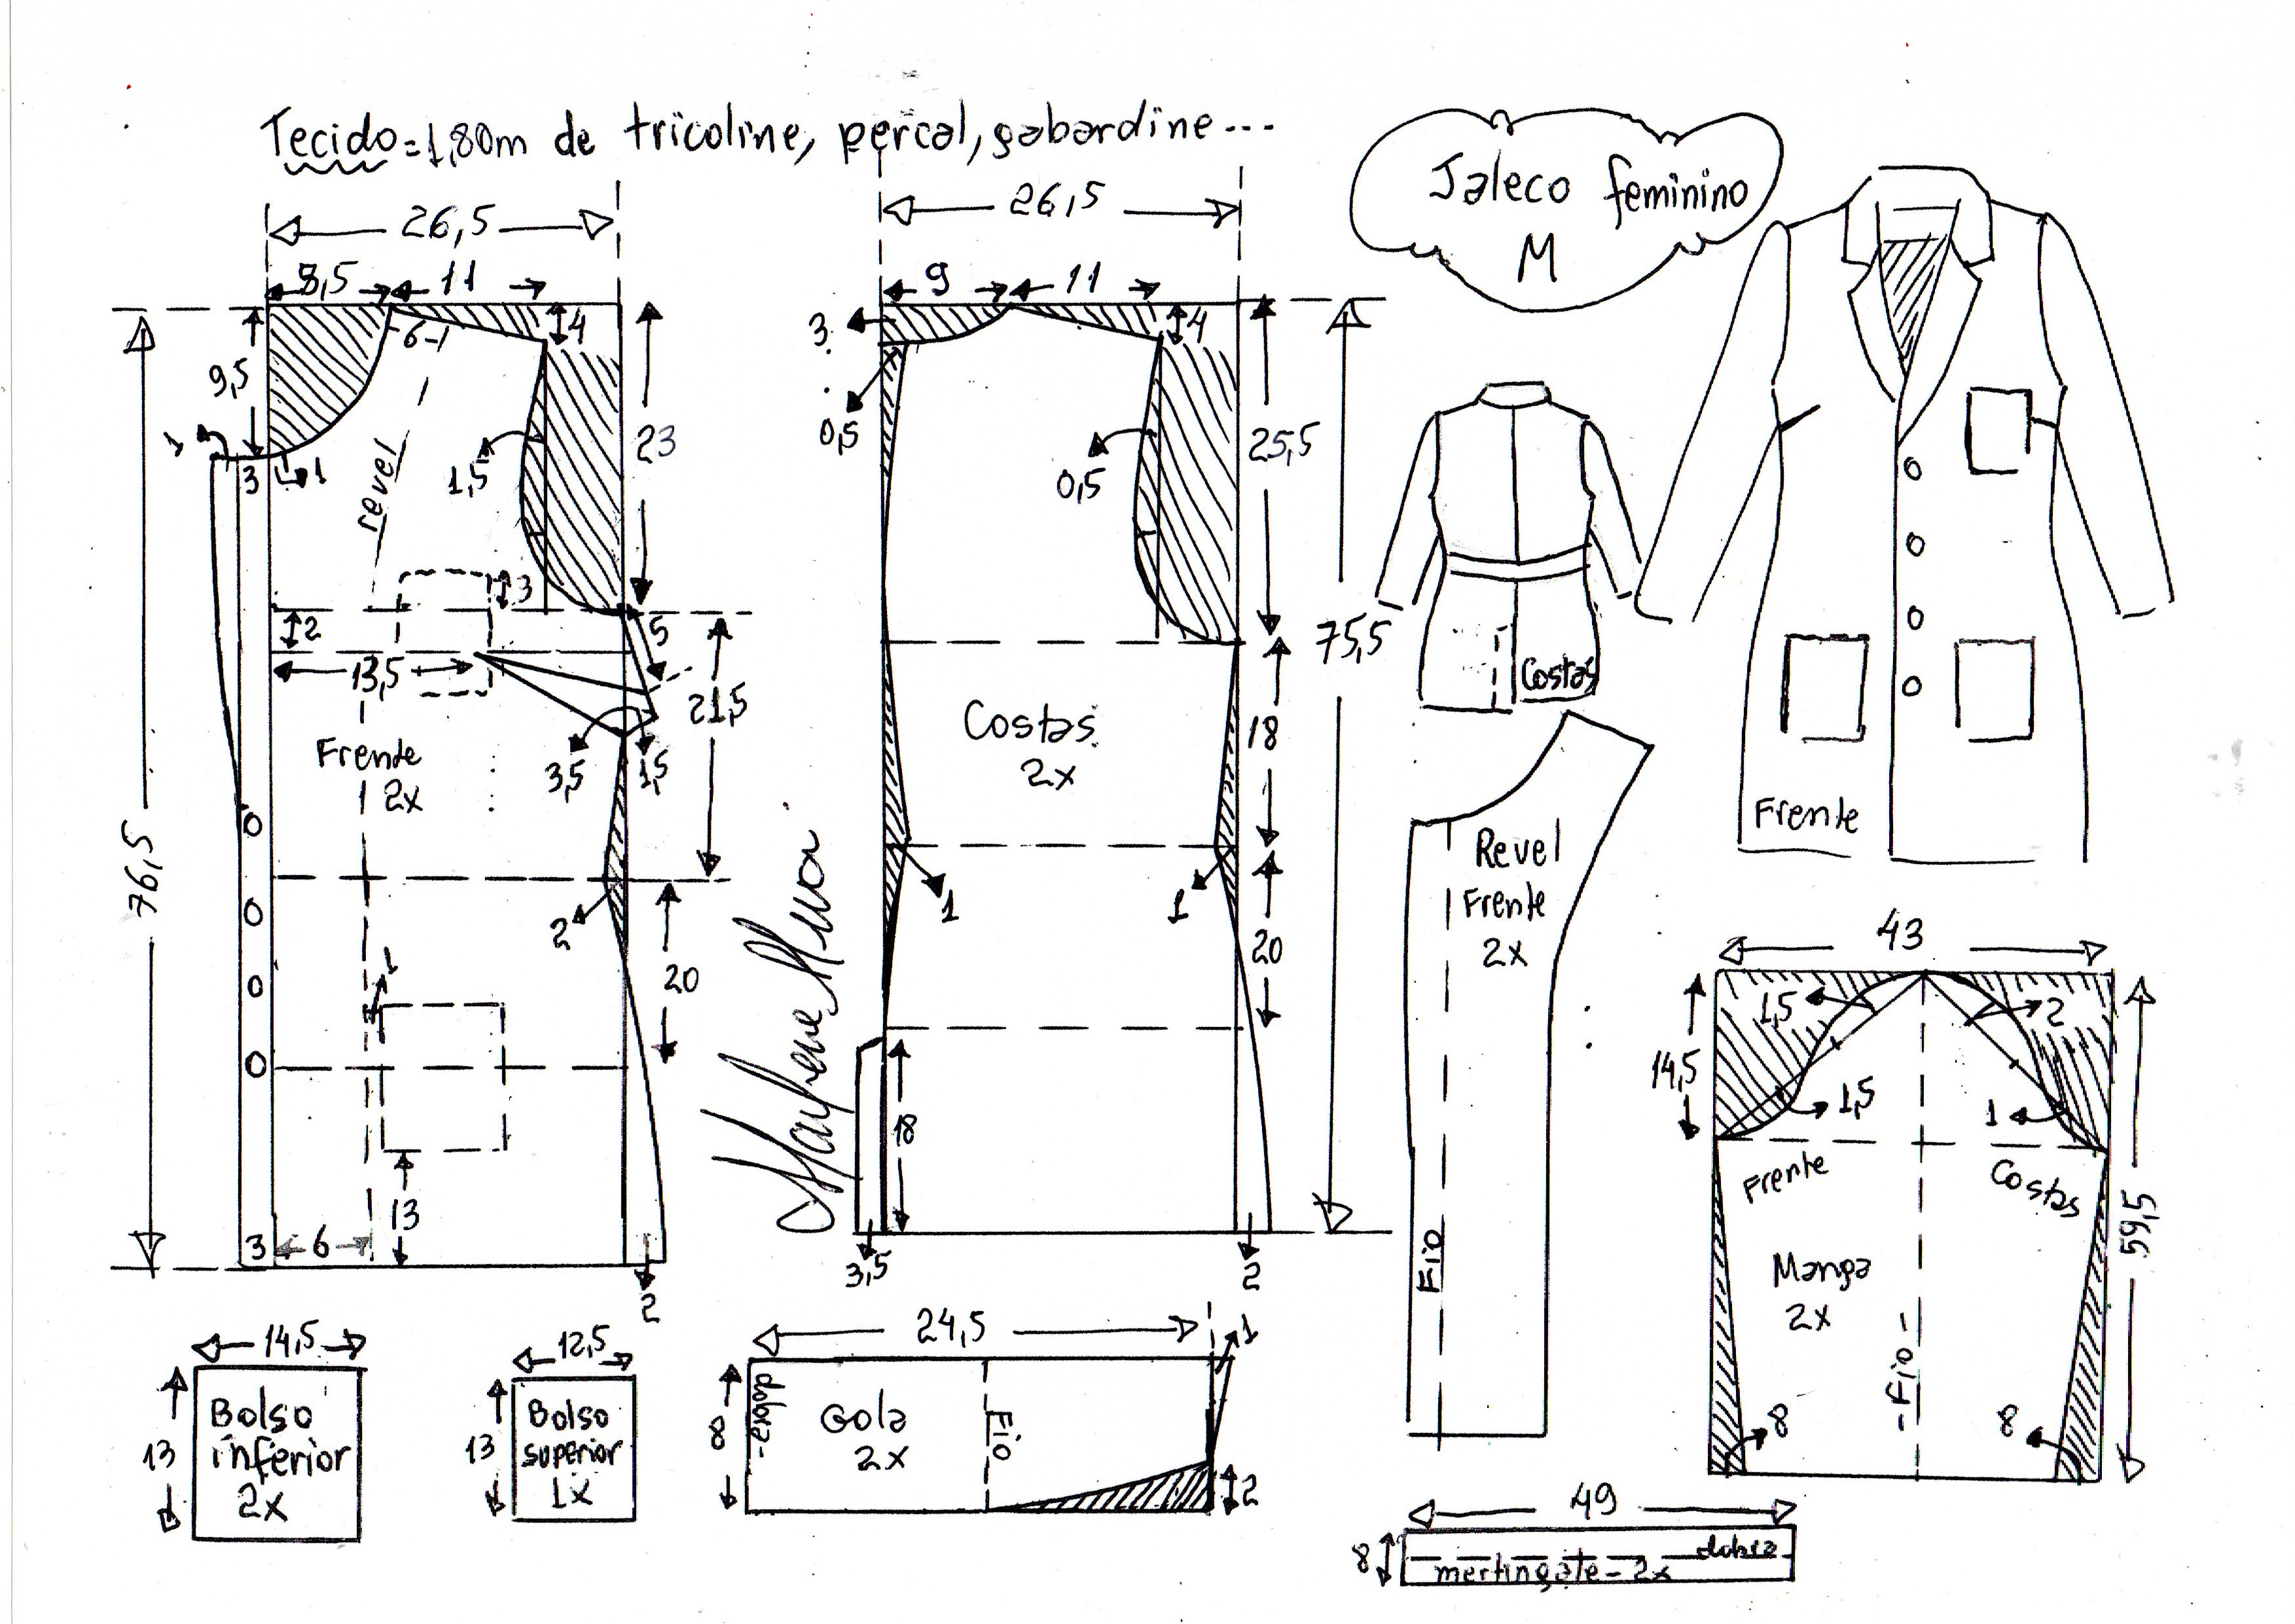 Tecido = 1,80m de tricoline, percal, gabardine...
Jaleco feminino
M
26,5
8,5
11
6
4
9,5
1
3
1
revel
1,5
23
3
2
5
13,5
21,5
Frente
2x
3,5
1,5
76,5
2
20
1
13
3
6
2
26,5
9
11
3
4
0,5
0,5
25,5
75,5
Costas
2x
18
1
1
20
18
3,5
2
Costas
Frente
Revel
Frente
2x
Fio
43
1,5
2
14,5
1,5
1
Frente
Costas
59,5
Manga
2x
Fio
8
8
14,5
13
Bolso
inferior
2x
12,5
13
Bolso
superior
1x
24,5
1
8
dobra
Gola
2x
Fio
2
49
8
dobra
mertingate - 2x